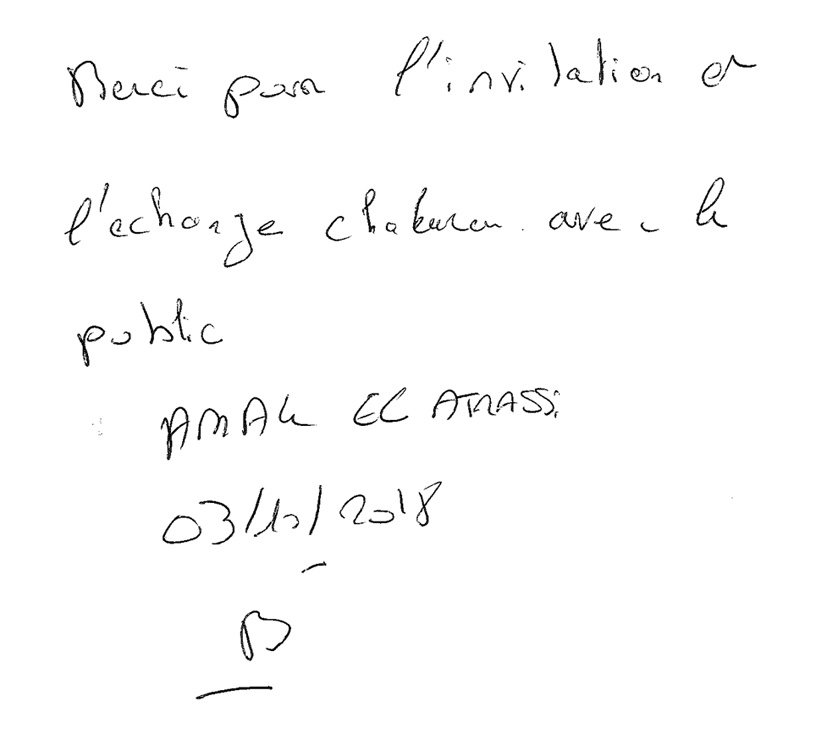 Merci pour l'invitation et
l'echange chaleureux avec le
public
AMAL EL ATRASSI
03/10/2018